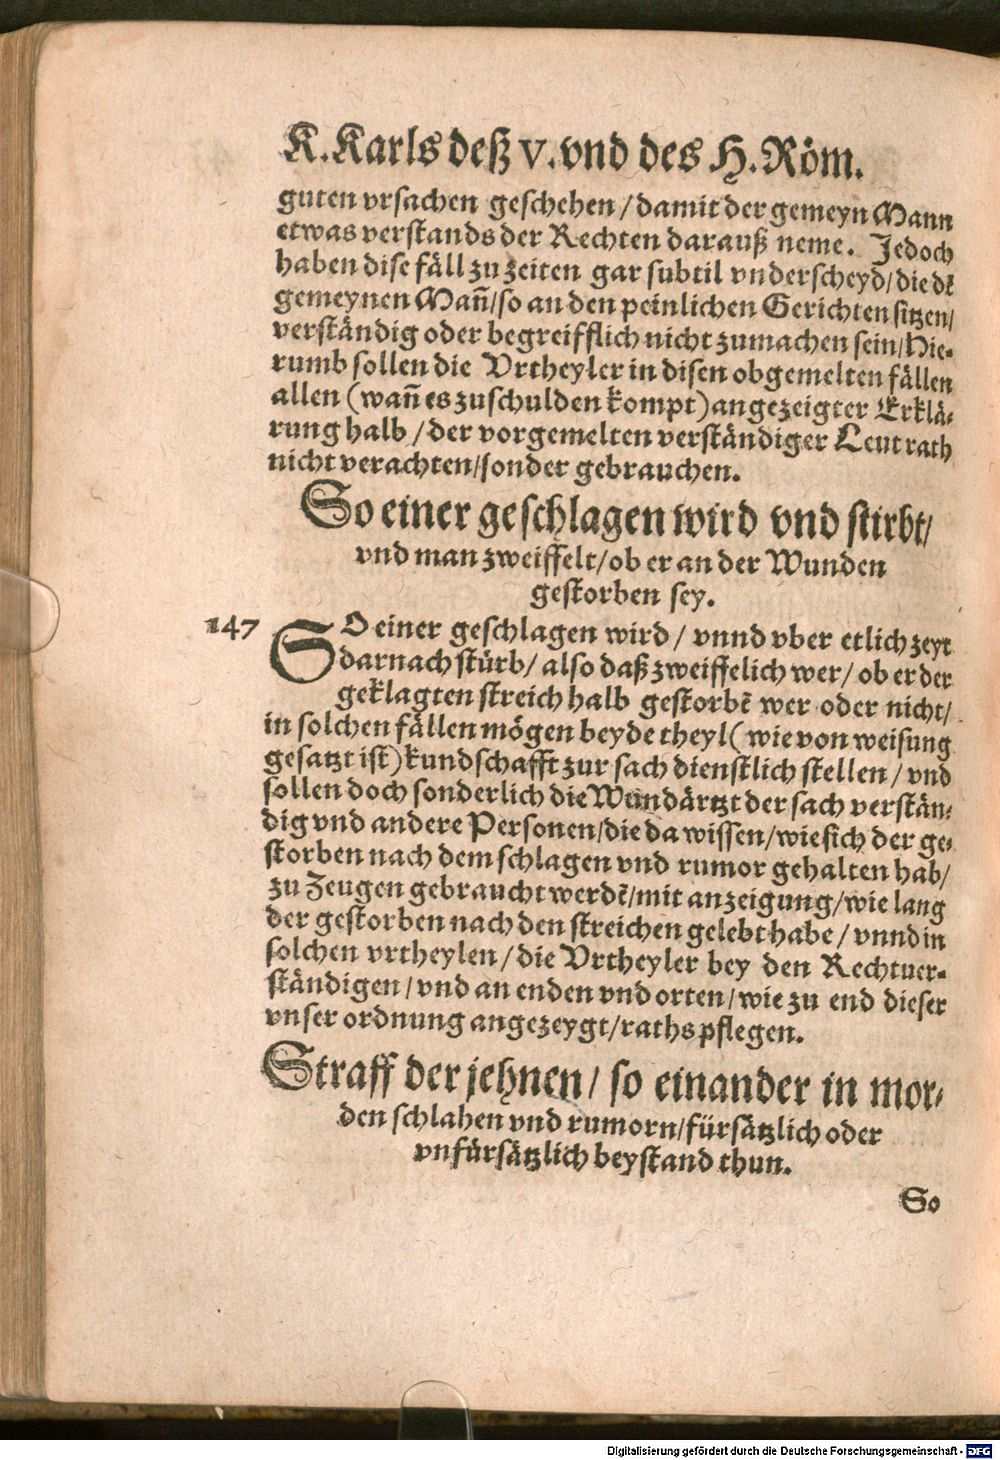 K.Karls deß V.vnd des H.Röm.
guten vrsachen geschehen/damit der gemeyn Mann
etwas verstands der Rechten darauß neme. Jedoch
haben dise fäll zu zeiten gar subtil vnderscheyd/die dē
gemeynen Mañ/so an den peinlichen Gerichten sitzen/
verständig oder begreifflich nicht zumachen sein/Hie-
rumb sollen die Vrtheyler in disen obgemelten fällen
allen (wañ es zuschulden kompt) angezeigter Erklä-
rung halb/der vorgemelten verständiger Leut rath
nicht verachten/sonder gebrauchen.
So einer geschlagen wird vnd stirbt/
vnd man zweiffelt/ob er an der Wunden
gestorben sey.
147 SO einer geschlagen wird/ vnnd vber etlich zeyt
darnach stürb/ also daß zweiffelich wer/ ob er der
geklagten streich halb gestorbē wer oder nicht/
in solchen fällen mögen beyde theyl (wie von weisung
gesatzt ist) kundschafft zur sach dienstlich stellen/vnd
sollen doch sonderlich die Wundärtzt der sach verstän-
dig vnd andere Personen/die da wissen/wie sich der ge-
storben nach dem schlagen vnd rumor gehalten hab/
zu Zeugen gebraucht werdē/mit anzeigung/wie lang
der gestorben nach den streichen gelebt habe/ vnnd in
solchen vrtheylen/die Vrtheyler bey den Rechtuer-
ständigen/vnd an enden vnd orten/wie zu end dieser
vnser ordnung angezeygt/raths pflegen.
Straff der jehnen/ so einander in mor-
den schlahen vnd rumorn/fürsätzlich oder
vnfürsätzlich beystand thun.
So
Digitalisierung gefördert durch die Deutsche Forschungsgemeinschaft - DFG